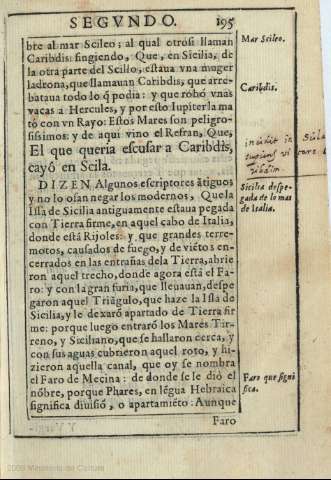 SEGVNDO. 195
bre al mar Scileo; al qual otrosi llaman
Caribdis: fingiendo, Que, en Sicilia, de
la otra parte del Scillo, estaua vna muger
ladrona, que llamauan Caribdis, que arre-
bataua todo lo q̃ podia: y que robó vnas
vacas a Hercules, y por esto Iupiter la ma
tó con vn Rayo: Estos Mares son peligro-
sissimos: y de aqui vino el Refran, Que,
El que queria escusar a Caribdis,
cayó en Scila.
DIZEN Algunos escriptores ãtiguos
y no lo osan negar los modernos, Que la
Isla de Sicilia antiguamente estaua pegada
con Tierra firme, en aquel cabo de Italia,
donde está Rijoles: y que grandes terre-
motos, causados de fuego, y de viẽtos en-
cerrados en las entrañas dela Tierra, abrie
ron aquel trecho, donde agora está el Fa-
ro: y con la gran furia, que lleuauan, despe
garon aquel Triãgulo, que haze la Isla de
Sicilia, y le dexarõ apartado de Tierra fir
me: porque luego entrarõ los Mares Tir-
reno, y Siciliano, que se hallaron cerca, y
con sus aguas cubrieron aquel roto, y hi-
zieron aquella canal, que oy se nombra
el Faro de Mecina: de donde se le dió el
nõbre, porque Phares, en lẽgua Hebraica
significa diuisiõ, o apartamiẽto: Aunque
Faro
Mar Scileo.
Caribdis.
incidit in Scila
cupiens vi
Sicilia despe-
gada de lo mas
de Italia.
Faro que signi
fica.
2009 Ministerio de Cultura